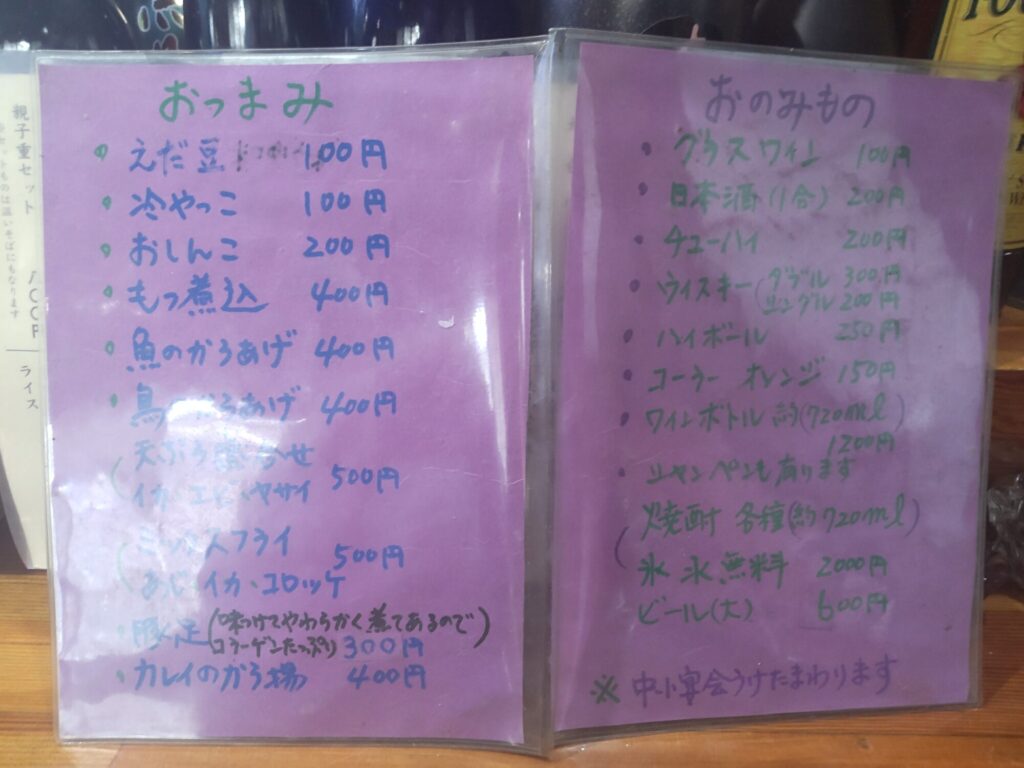 おつまみ
えだ豆 100円
冷やっこ 100円
おしんこ 200円
もつ煮込 400円
魚のからあげ 400円
鳥のからあげ 400円
天ぷら盛合せ
イカ・エビ・ヤサイ 500円
ミックスフライ
500円
あじ・イカ・コロッケ
豚足(味つけてやわらかく煮てあるので)
コラーゲンたっぷり 300円
カレイのから揚 400円
おのみもの
グラスワイン 100円
日本酒(1合) 200円
チューハイ 200円
ウイスキー(ダブル 300円
シングル 200円
ハイボール 250円
コーラー オレンジ 150円
ワインボトル 約(720ml)
1200円
シャンペンも有ります
焼酎 各種(約720ml)
氷 水 無料 2000円
ビール(大) 600円
※ 中小宴会うけたまわります
親子重セット
ライス